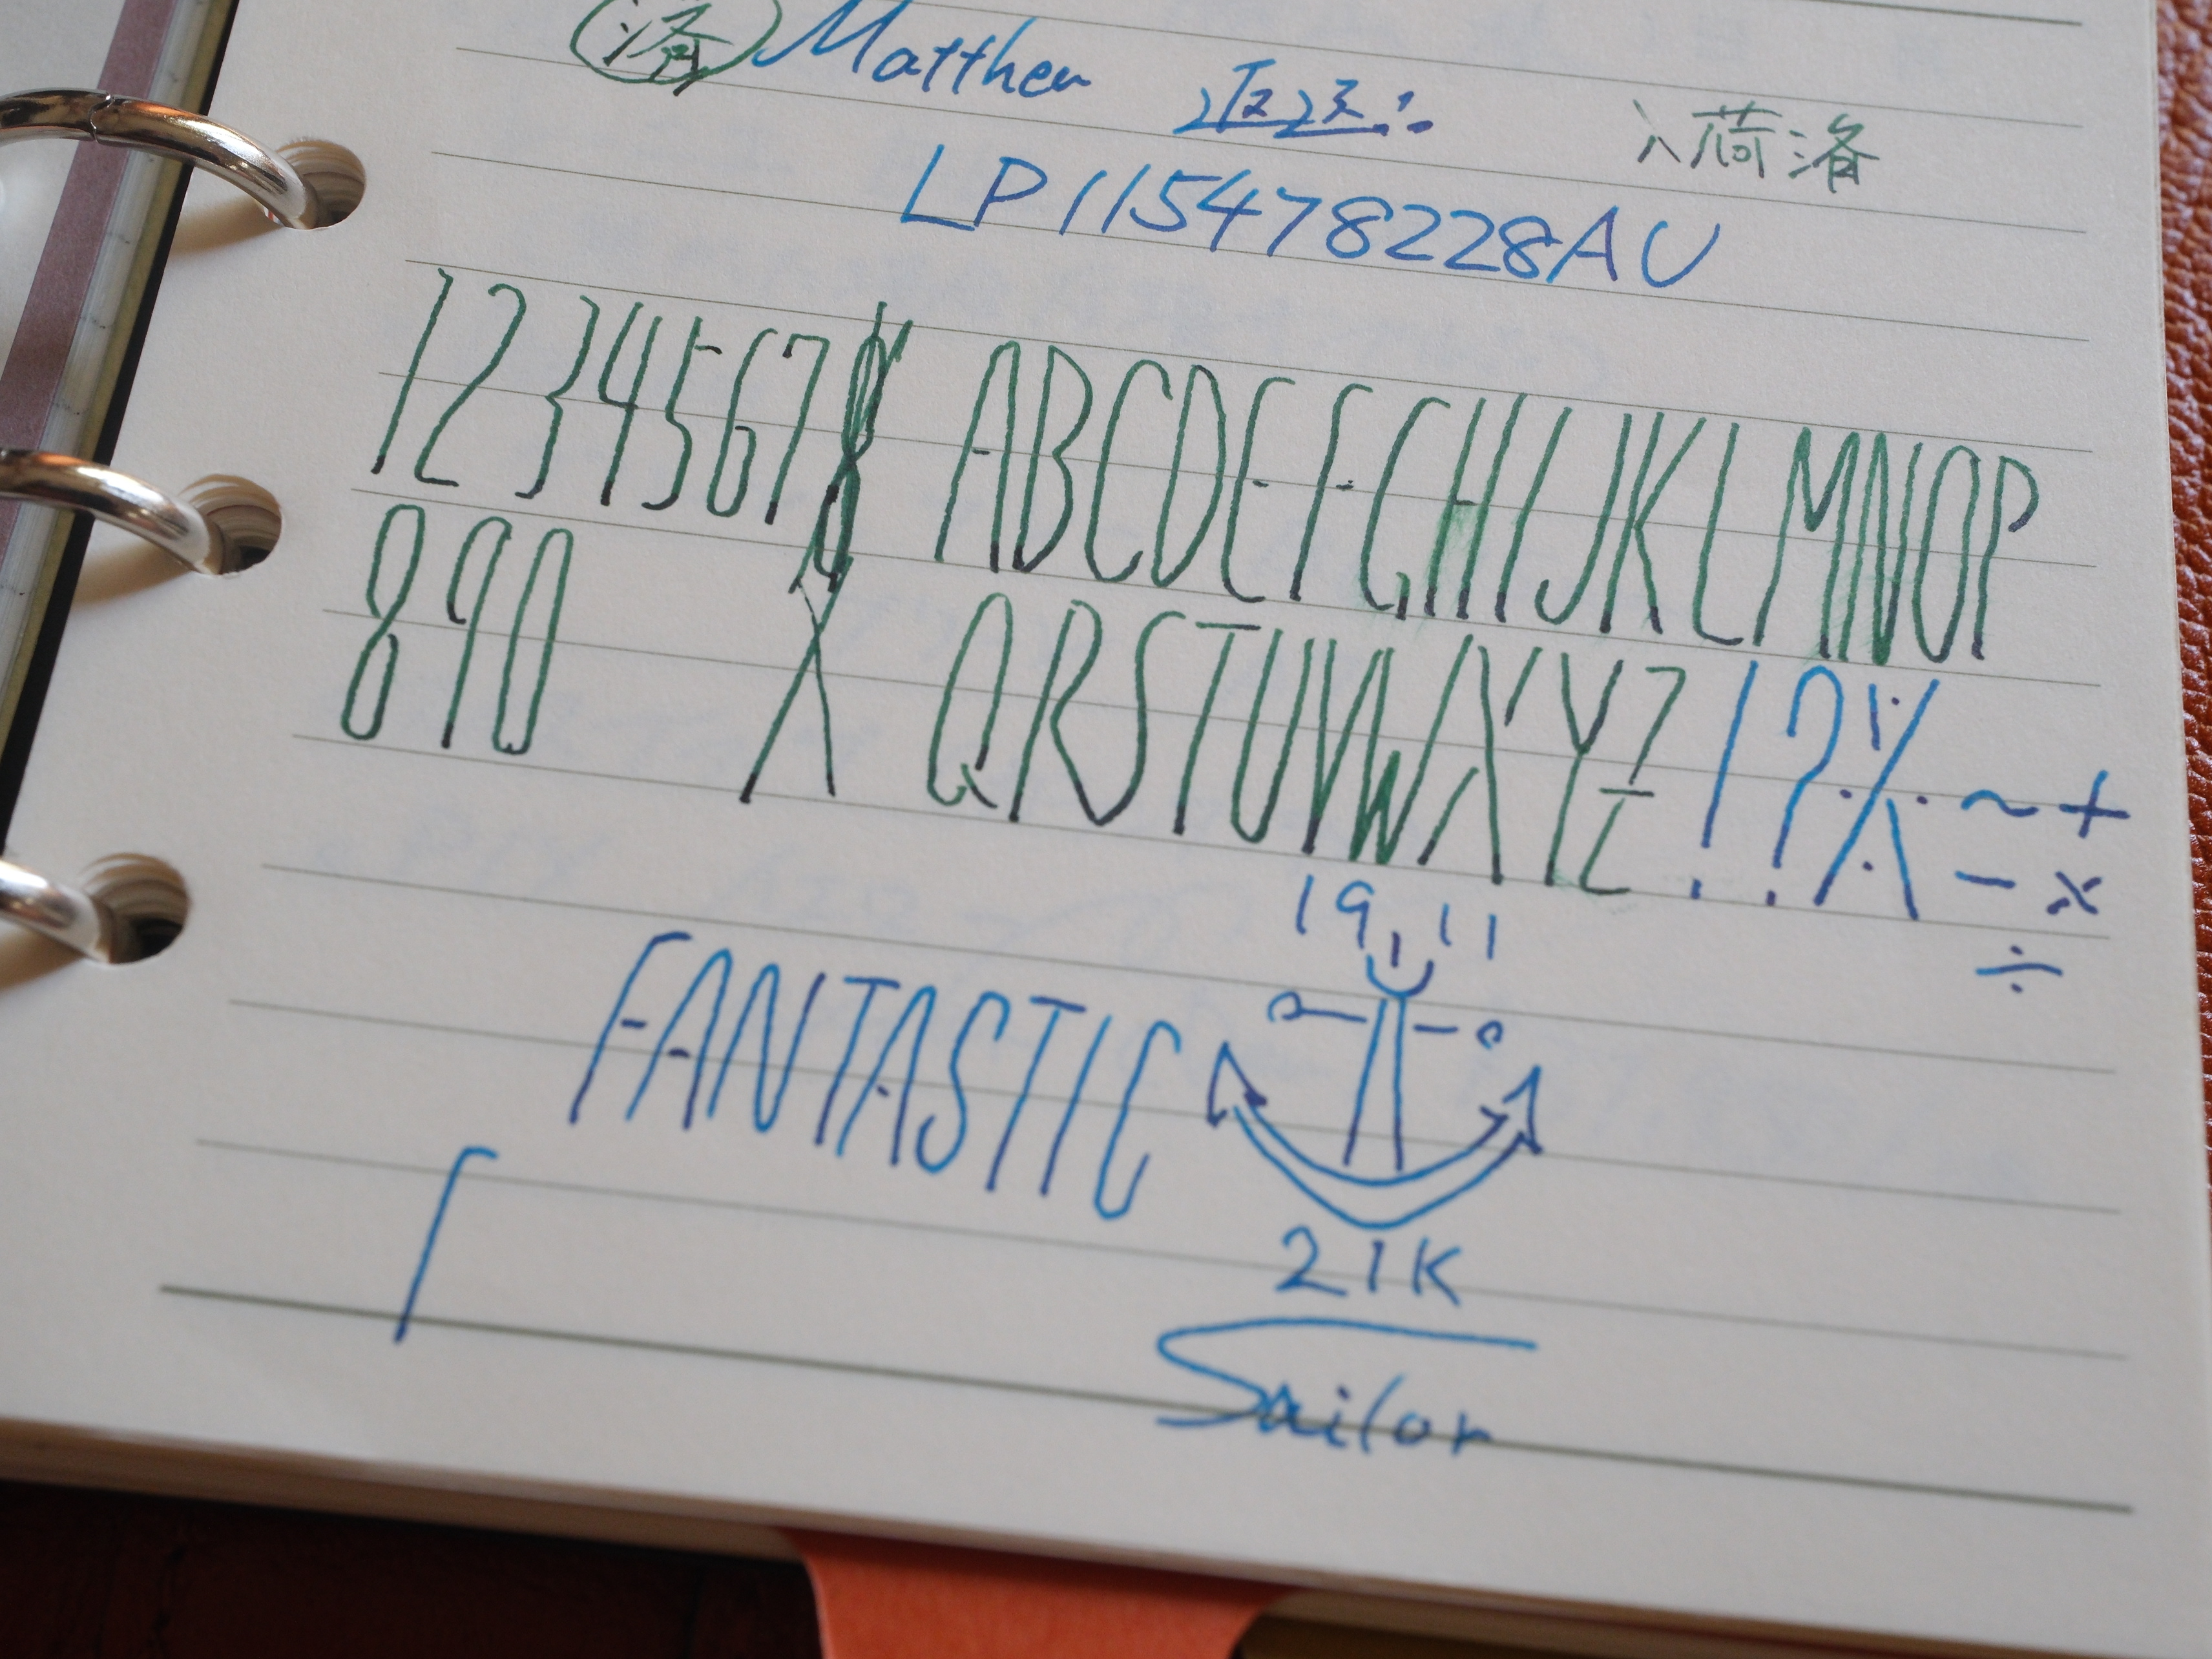 済 Matthew 返送 入荷済
LP115478228AU
12345678 ABCDEFGHIJKLMNOP
890 QRSTUVWXYZ!?
~+
-×
÷
1911
FANTASTIC
21K
Sailor